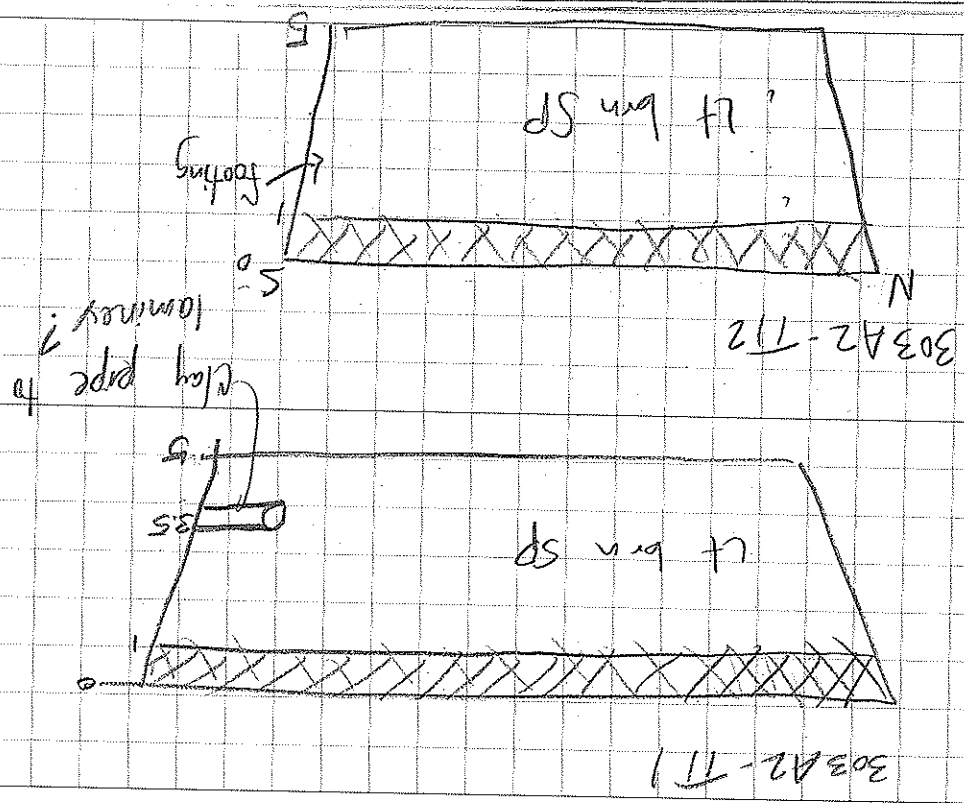 303A2-TT1
0
1
Lt brn SP
3.5
5
Clay pipe to
303A2-TT2
N S
0
1
footing
Lt brn SP
5